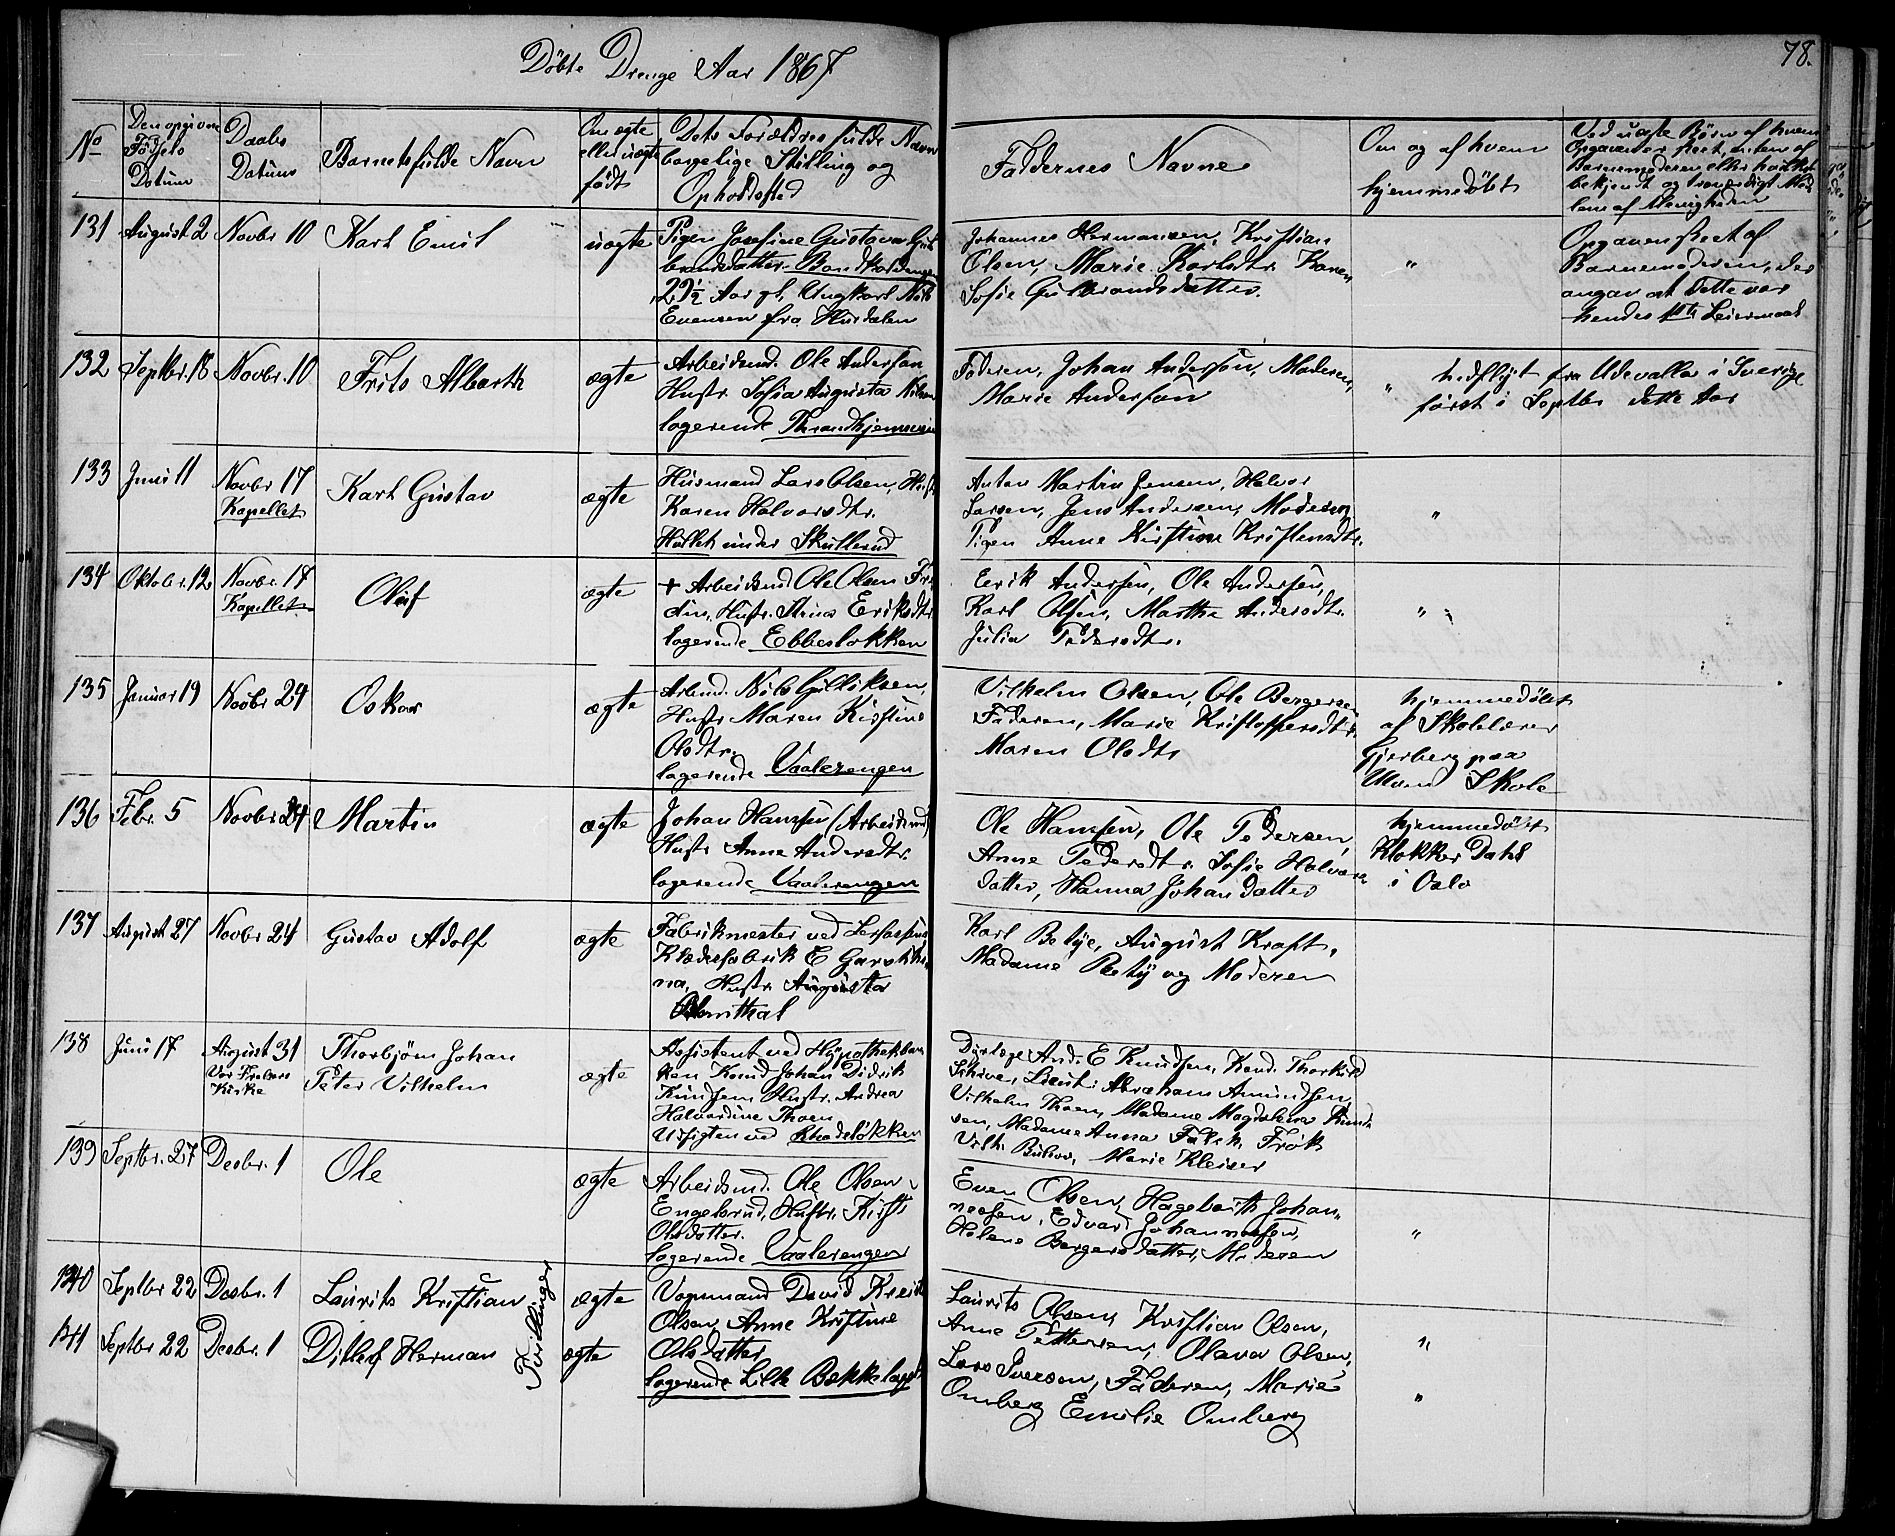 Döbte Drenge Aar 1867
78.
No
Den opgivne Födsels Datum
Daabs Datum
Barnets fulde Navn
Om ægte eller uægte födt
Dets Forældres fulde Navn borgelige Stilling og Opholdssted
Faddernes Navne
Om og af hvem hjemmedöbt
Ved uægte Börn af hvem Opgaven er skeet, enten af Barnemoderen eller hvilket bekjendt og troværdigt Med lem af Menigheden
131 August 2 Novbr 10 Karl Emil uægte
Pigen Josefine Gustava Gul
brandsdatter
29½ Aar gl, Ungkarl Niels
Evensen fra Hurdalen
Johannes Hermansen, Kristian
Olsen, Marie Karlsdtr. Karen
Sofie Gulbrandsdatter.
"
Opgaven skeet af
Barnemoderen, der
angav at dette var
hendes 1ste Leiermaal
132 Septbr. 18 Novbr. 10 Frits Alberth ægte
Arbeidsmd. Ole Anderson
Hustr. Sofia Augusta
logerende
Faderen, Johan Anderson, Moderen,
Marie Anderson
"
hidflyt fra Udevalla i Sverige
först i Septbr dette Aar
133 Juni 11 Novbr 17 Kapellet Karl Gustav ægte
Husmand Lars Olsen, Hust
Karen Halvorsdtr.
Hullet under Skullerud
Anton Martin Jensen, Halvor
Larsen, Jens Andersen, Moderen
Pigen Anne Kirstine Kristensdtr.
"
134 Oktobr. 12 Novbr. 17 Kapellet Olaf ægte
+ Arbeidsmd Ole Olsen
Hustr. Stina Eriksdtr
logerende Ebbeslökken
Eerik Andersen, Ole Andersen,
Karl Olsen, Marthe Andersdtr.
Julia Pedersdtr.
"
135 Januar 19 Novbr 24 Oskar ægte
Arbmd. Nils Gulliksen,
Hustr Maren Kirstine
Olsdtr.
logerende Vaalerengen
Vilhelm Olsen, Ole Bergersen
Faderen, Marie Kristoffersdtr.
Maren Olsdtr
hjemmedöbt
af Skolelærer
Gjerberg paa
Skole
136 Febr. 5 Novbr 24 Martin ægte
Johan Hansen (Arbeidsmd)
Hustr Anne Andersdtr.
logerende Vaalerengen
Ole Hansen, Ole Pedersen,
Anne Pedersdtr. Sofie Halvors
datter, Hanna Johansdatter
hjemmedöbt
Klokker Dahl
i Oslo
137 August 27 Novbr 24 Gustav Adolf ægte
Fabrikmester ved
Klædesfabrik E
na, Hustr. Augusta
Karl August Kraft,
Madame og Moderen
138 Juni 17 August 31 Vor Frelsers Kirke Thorbjörn Johan
Peter Vilhelm ægte
Assistent ved Hypothekban
ken Knud Johan Didrik
Knudsen Hustr. Andrea
Halvardine Thoen
Udsigten ved
Dyrlæge And. E Knudsen, Kand. Thorkild
Lieut: Abraham Amundsen,
Vilhelm Thoen, Madame Magdalena Knud
sen, Madame Anna Falck, Frök
Vilh. Bülow, Marie Kleiser
139 Septbr. 27 Desbr. 1 Ole ægte
Arbeidsmd. Ole Olsen
Engelsrud, Hustr. Kirst
Olsdatter.
logerende Vaalerengen
Even Olsen, Hagbarth Johan
nessen, Edvard Johannessen,
Helene Bergersdatter, Moderen
"
140 Septbr 22 Desbr. 1 Laurits Kristian ægte
141 Septbr 22 Desbr. 1 Ditlef Herman ægte
Tvillinger
Vognmand David
Olsen, Anne Kristine
Olsdatter
logerende Lille Bækkelaget
Laurits Olsen, Kristian Olsen,
Anne Pettersen, Olava Olsen,
Lars Iversen, Faderen, Marie
Omberg Emilie Omberg
"
"